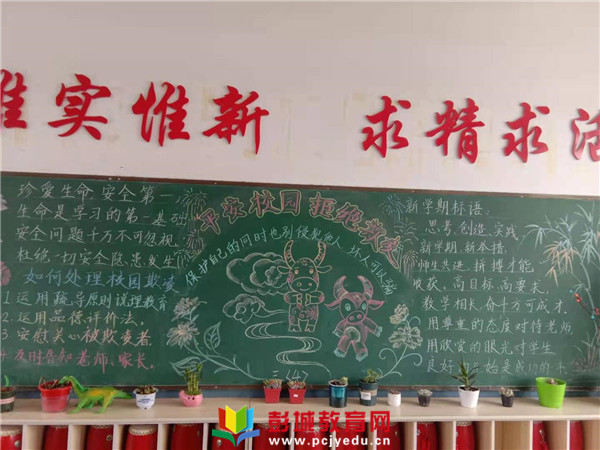 惟实惟新 求精求活
珍爱生命,安全第一
生命是学习的第一基础
安全问题千万不可忽视
杜绝一切安全隐患发生
如何处理校园欺凌
1.运用疏导原则说理教育
2.运用品德评价法.
3.安慰关心被欺凌者
4.及时告知老师、家长。
平安校园拒绝欺凌
保护自己的同时也别侵犯他人
新学期标语:
思考,创造,实践
新学期,新举措
师生共进,拼搏才能
收获。高目标,高要长.
教学相长,奋斗方可成才.
用尊重的态度对待老师,
用欣赏的眼光对学生
良好
始是成功的
彭城教育网
www.pcjyedu.cn